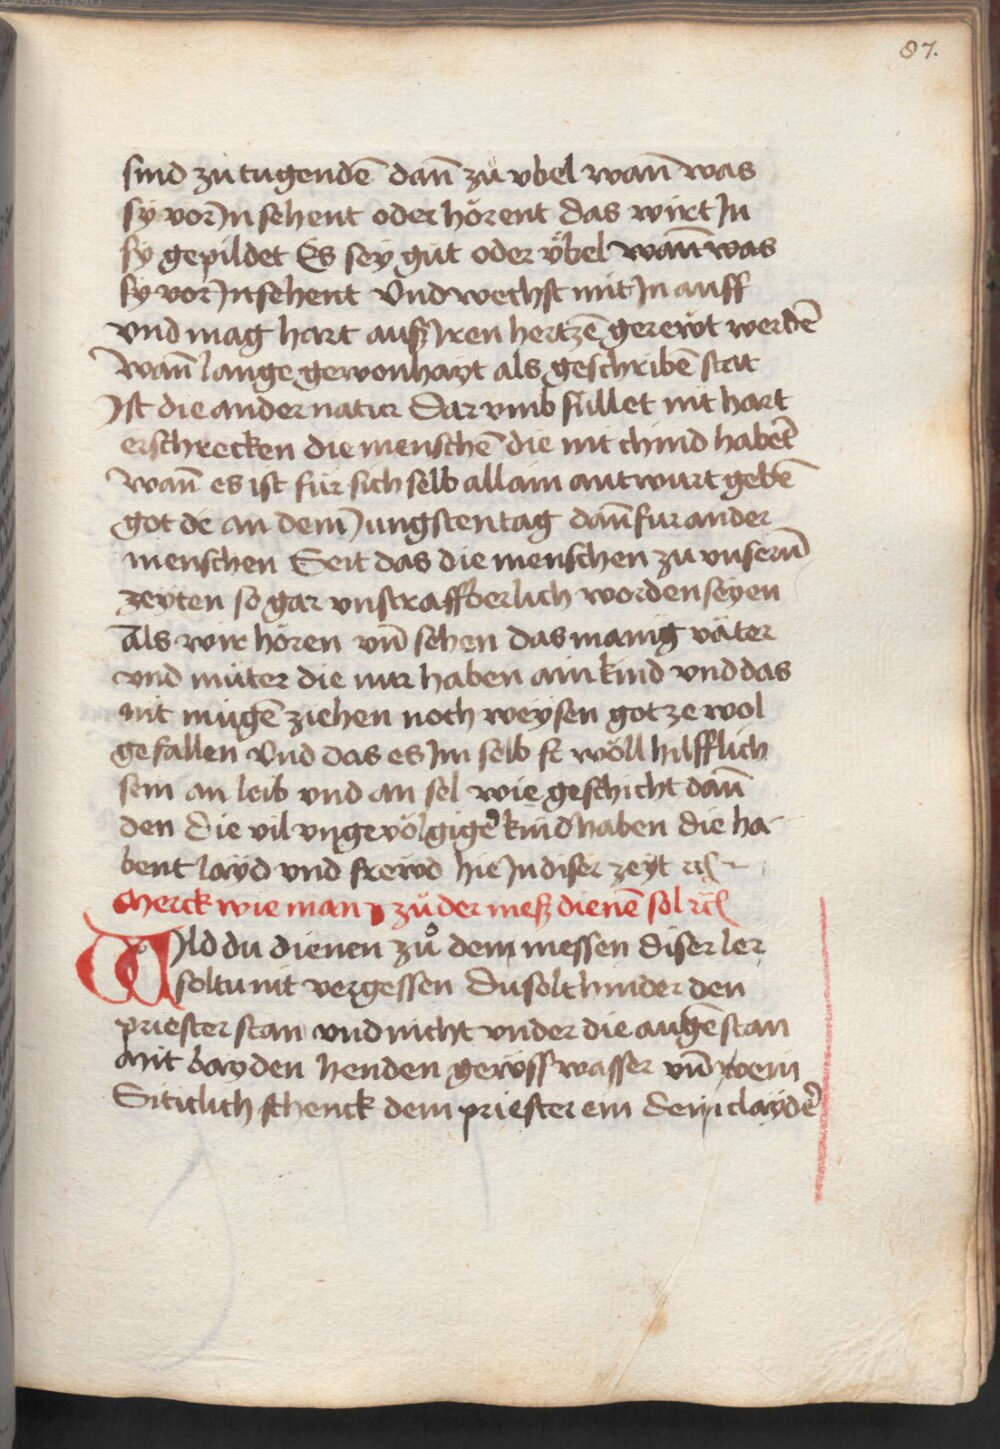 87.
sind zu tugendē dan̄ zů vbel wan̄ was
sy vor Jn sehent oder hörent das wirt Jn
sy gepildet Es sey gut oder v̈bel wan̄ was
sy vor Jn sehent Vnd wechst mit Jn auff
vnd mag hart auß Jren hertzē gerewt werdē
Wan̄ lange gewonhayt als geschribē stat
Jst die ander natur Dar vmb sullet nit hart
erschrecken die menschē die nit chind habēt
Wan̄ es ist für sich selb allain antwurt gebē
got dē an dem Jungsten tag dan̄ fur ander
menschen Seit das die menschen zu vnsern̄
zeyten so gar vnstraffberlich worden seyen
Als wir hören vn̄ sehen das manig väter
vnd müter die nur haben ain kind vnd das
nit mugē ziehen noch weysen got ze wol
gefallen Vnd das es Jm selb wöll hilfflich
sein an leib vnd an sel wie geschicht dan̄
den die vil vngevölgiger kind haben die ha-
bent layd vnd frewd hie Jn diser zeyt
Merck wie man zů der meß dienē sol
Wild du dienen zů dem messen diser ler
soltu nit vergessen Du solt hinder den
priester stan vnd nicht vnder die augē stan
Mit bayden henden gewss wasser vn̄ wein
Siticlich schenck dem priester ein Dein claydēr